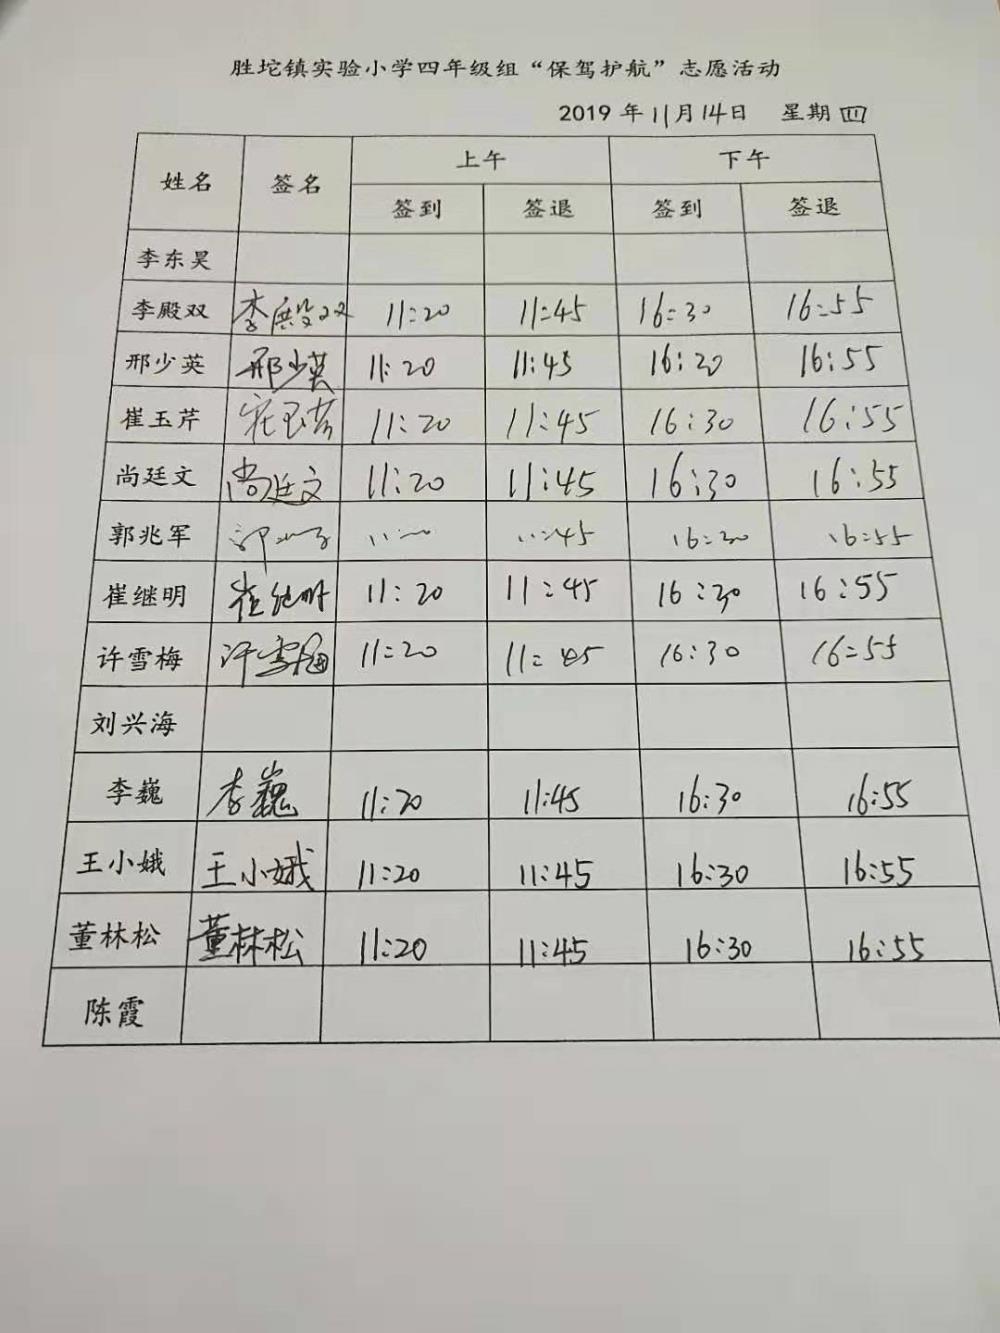 胜坨镇实验小学四年级组“保驾护航”志愿活动
2019 年 11月 14日 星期 四
姓名 签名 上午 下午
签到 签退 签到 签退
李东昊
李殿双 李殿双 11:20 11:45 16:30 16:55
邢少英 邢少英 11:20 11:45 16:20 16:55
崔玉芹 崔玉芹 11:20 11:45 16:30 16:55
尚廷文 尚廷文 11:20 11:45 16:30 16:55
郭兆军 16:55
崔继明 崔继明 11:20 11:45 16:30 16:55
许雪梅 许雪梅 11:20 11:45 16:30 16:55
刘兴海
李巍 李巍 11:20 11:45 16:30 16:55
王小娥 王小娥 11:20 11:45 16:30 16:55
董林松 董林松 11:20 11:45 16:30 16:55
陈霞